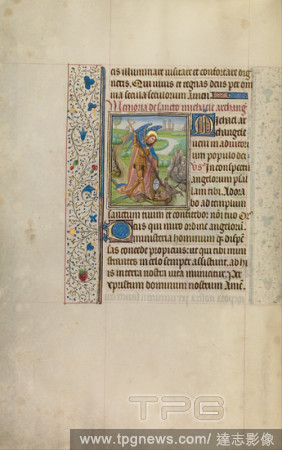 cis illuminare visitare et confortare dig
neris. Qui vivis et regnas deus per om
nia secula seculorum Amen
Memoria de sancto michaele archang
Michael ar
changele
veni in adiuto
rium populo dei
In conspectu
angelorum psal
lam tibi. Adora
bo ad templum
sanctum tuum et confitebor nomi tuo Or
Deus qui miro ordine angelorum
ministeria hominum
sas concede propicius: ut qui tibi mini
strantes in celo semper assistunt, ab his
in terra nostra vita muniatur. Per
xpristum dominum nostrum Amen.
TPG
www.tpgnews.com/達志影像